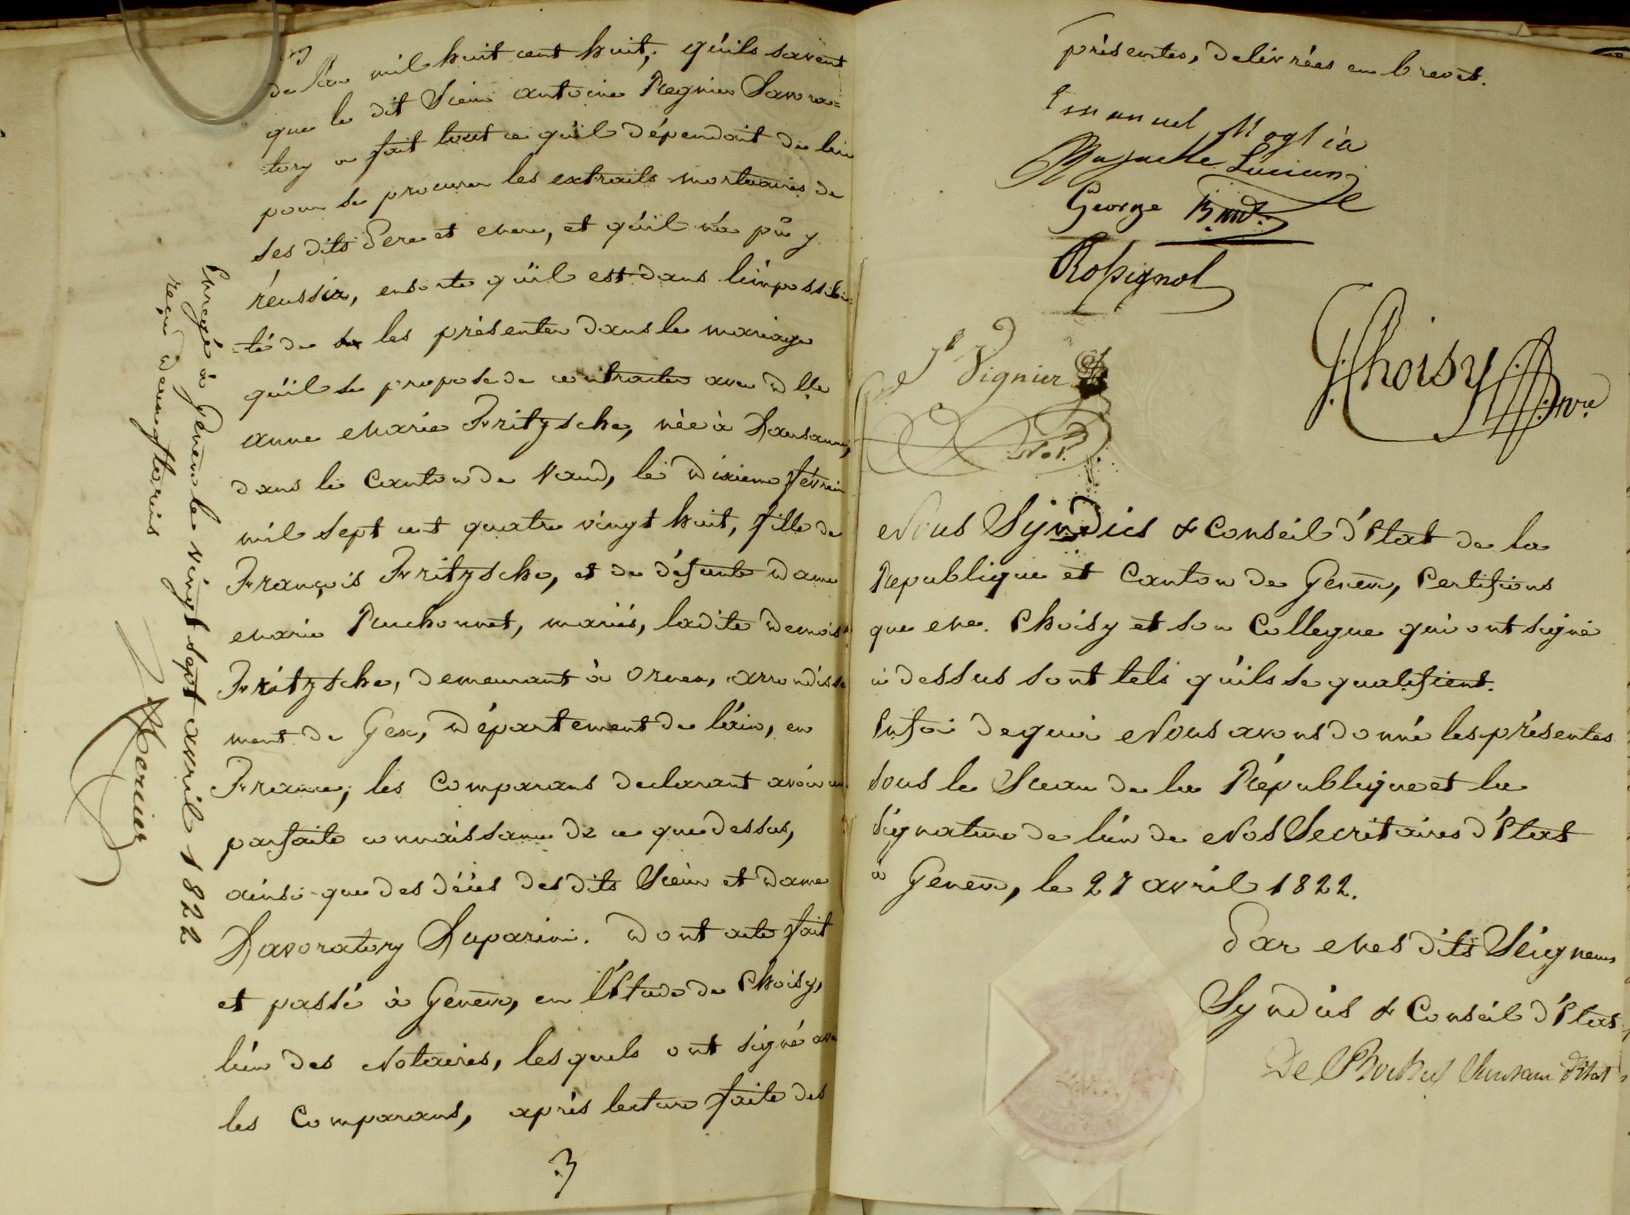 de l'an mil huit cent huit; qu'ils savent
que le dit Sieur antoine Regnier Lavora-
tory a fait tout ce qu'il dépendoit de lui
pour se procurer les extraits mortuaires de
ses dits Pere et mere, et qu'il n'a pû y
réussir, ensorte qu'il est dans l'impossibi-
té de les présenter dans le mariage
qu'il se propose de contracter avec Dlle
anne Marie Fritzsche, née à Lausanne,
dans le Canton de Vaud, le dixieme février
mil sept cent quatre vingt huit, fille de
François Fritzsche, et de défunte Dame
Marie Ruchonnet, mariés, ladite Demoise
Fritzsche, demeurant à Ornex, arrondisse
ment de Gex, Département de l'ain, en
France; les Comparans declarant avoir une
parfaite connaissance de ce que dessus,
ainsi que des décès des dits Sieur et Dame
Lavoratory Luparini. Dont acte fait
et passé à Geneve, en l'Etude de Choisy,
l'un des Notaires, lesquels ont signé avec
les Comparans, après lecture faite des
3
Enregé à Geneve le vingt sept avril 1822
reçu deux florins
Mercier
présentes, délivrées en brevet.
Emanuel Moglia
Lucien
George
Rossignol
Vignier
Not.
Choisy Nre
Nous Syndics & Conseil d'Etat de la
Republique et Canton de Geneve, Certifions
que Me. Choisy et son Collegue qui ont signé
ci dessus sont tels qu'ils se qualifient.
En foi de quoi Nous avons donné les présentes
sous le Sceau de la République et la
signature de l'un de Nos Secrétaires d'Etat
à Geneve, le 27 avril 1822.
Par mes dits Seigneurs
Syndics & Conseil d'Etat
De Secretaire d'Etat